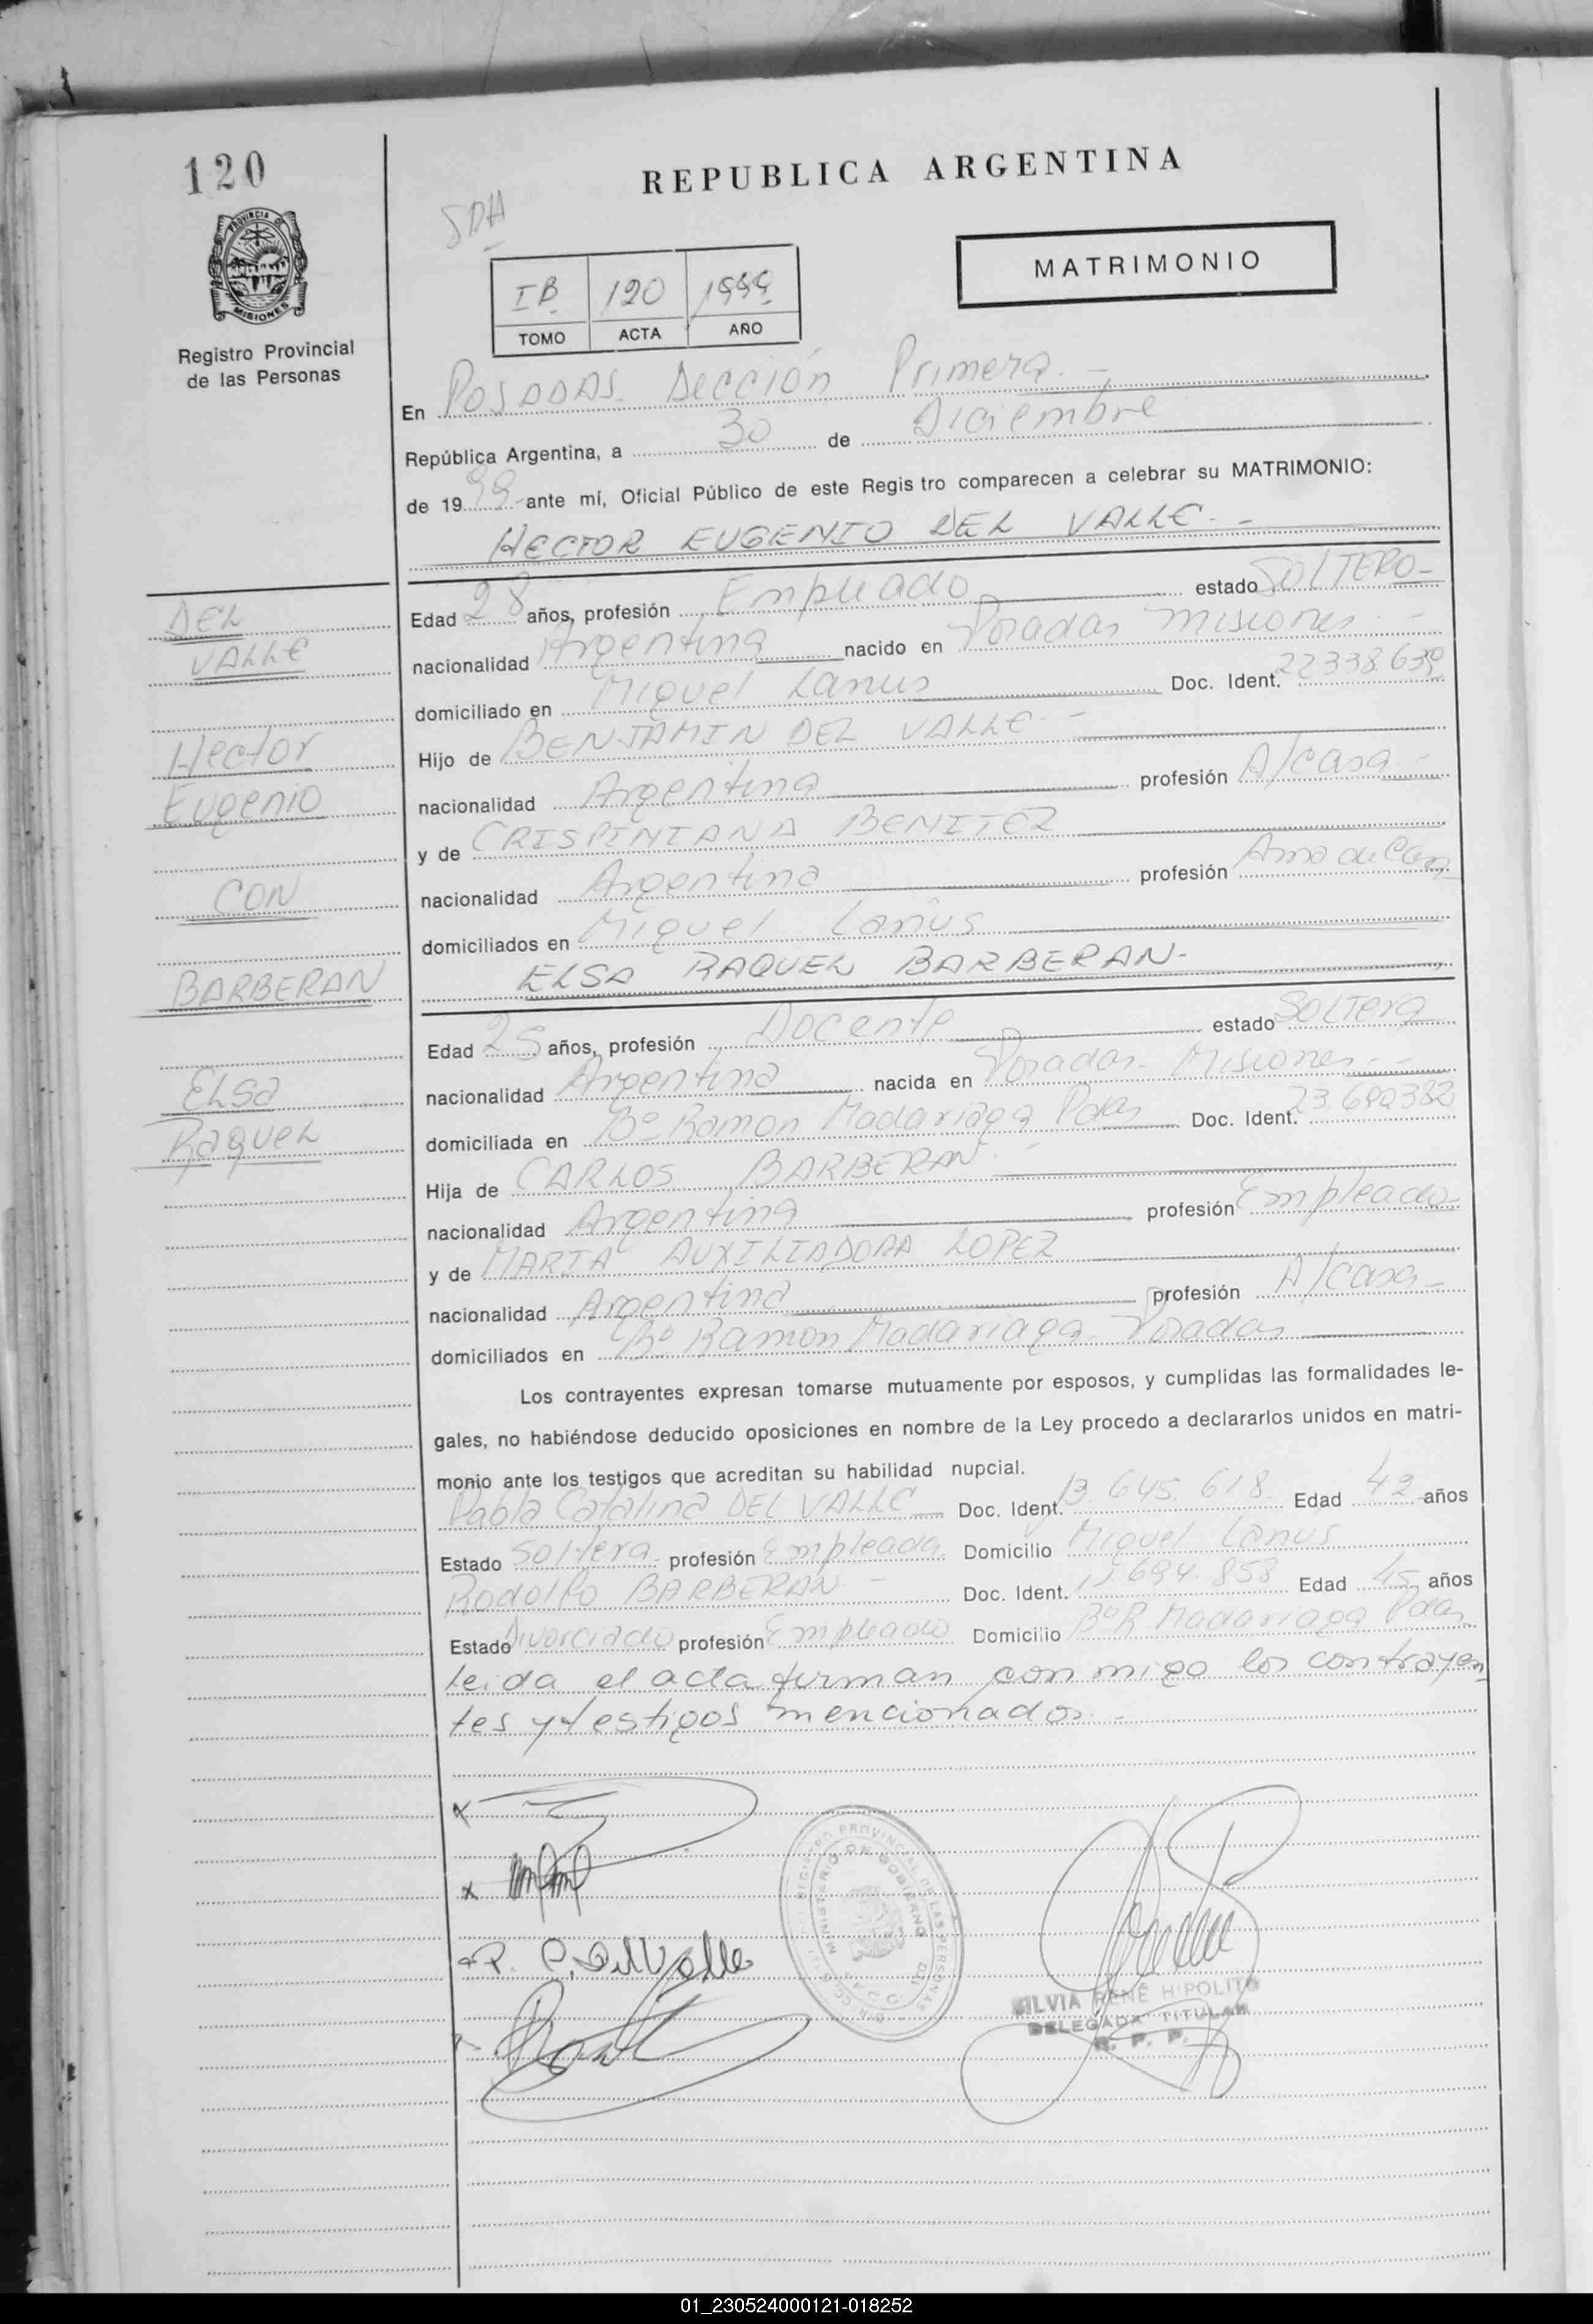 120
REPUBLICA ARGENTINA
SDH
PROVINCIA DE
MISIONES
MATRIMONIO
IB 120 1999
TOMO ACTA AÑO
Registro Provincial
de las Personas
En POSADAS Sección Primera.-
República Argentina, a 30 de Diciembre
de 1999 ante mí, Oficial Público de este Regis tro comparecen a celebrar su MATRIMONIO:
HECTOR EUGENIO DEL VALLE.-
DEL
VALLE
Hector
Eugenio
CON
BARBERAN
ELSA
Raquel
Edad 28 años, profesión Empleado estado SOLTERO-
nacionalidad Argentina nacido en Posadas Misiones.-
domiciliado en Miguel Lanus Doc. Ident. 22338.639
Hijo de BENJAMIN DEL VALLE.-
nacionalidad Argentina profesión A/casa.-
y de CRISPINIANA BENITEZ
nacionalidad Argentina profesión Ama de Casa
domiciliados en Miguel Lanus
ELSA RAQUEL BARBERAN-
Edad 25 años, profesión Docente estado SOLTERA
nacionalidad Argentina nacida en Posadas- Misiones.-
domiciliada en Bº Ramon Madariaga Pdas Doc. Ident. 23.690382
Hija de CARLOS BARBERAN.-
nacionalidad Argentina profesión Empleado-
y de MARIA AUXILIADORA LOPEZ
nacionalidad Argentina profesión A/casa-
domiciliados en Bº Ramon Madariaga- Posadas
Los contrayentes expresan tomarse mutuamente por esposos, y cumplidas las formalidades le-
gales, no habiéndose deducido oposiciones en nombre de la Ley procedo a declararlos unidos en matri-
monio ante los testigos que acreditan su habilidad nupcial.
Pabla Catalina DEL VALLE Doc. Ident. 13.645.618. Edad 42 años
Estado soltera. profesión Empleada Domicilio Miguel Lanus
Rodolfo BARBERAN.- Doc. Ident. 694.853 Edad 45 años
Estado Divorciado profesión Empleado Domicilio Bº R Madariaga Pdas
leida el acta firman con migo los contrayen
tes y testigos mencionados.-
P. C. Del Valle
REGISTRO PROVINCIAL DE LAS PERSONAS
MINISTERIO DE GOBIERNO
SILVIA RENÉ HIPOLITO
DELEGADA TITULAR
R. P. P.
01_230524000121-018252